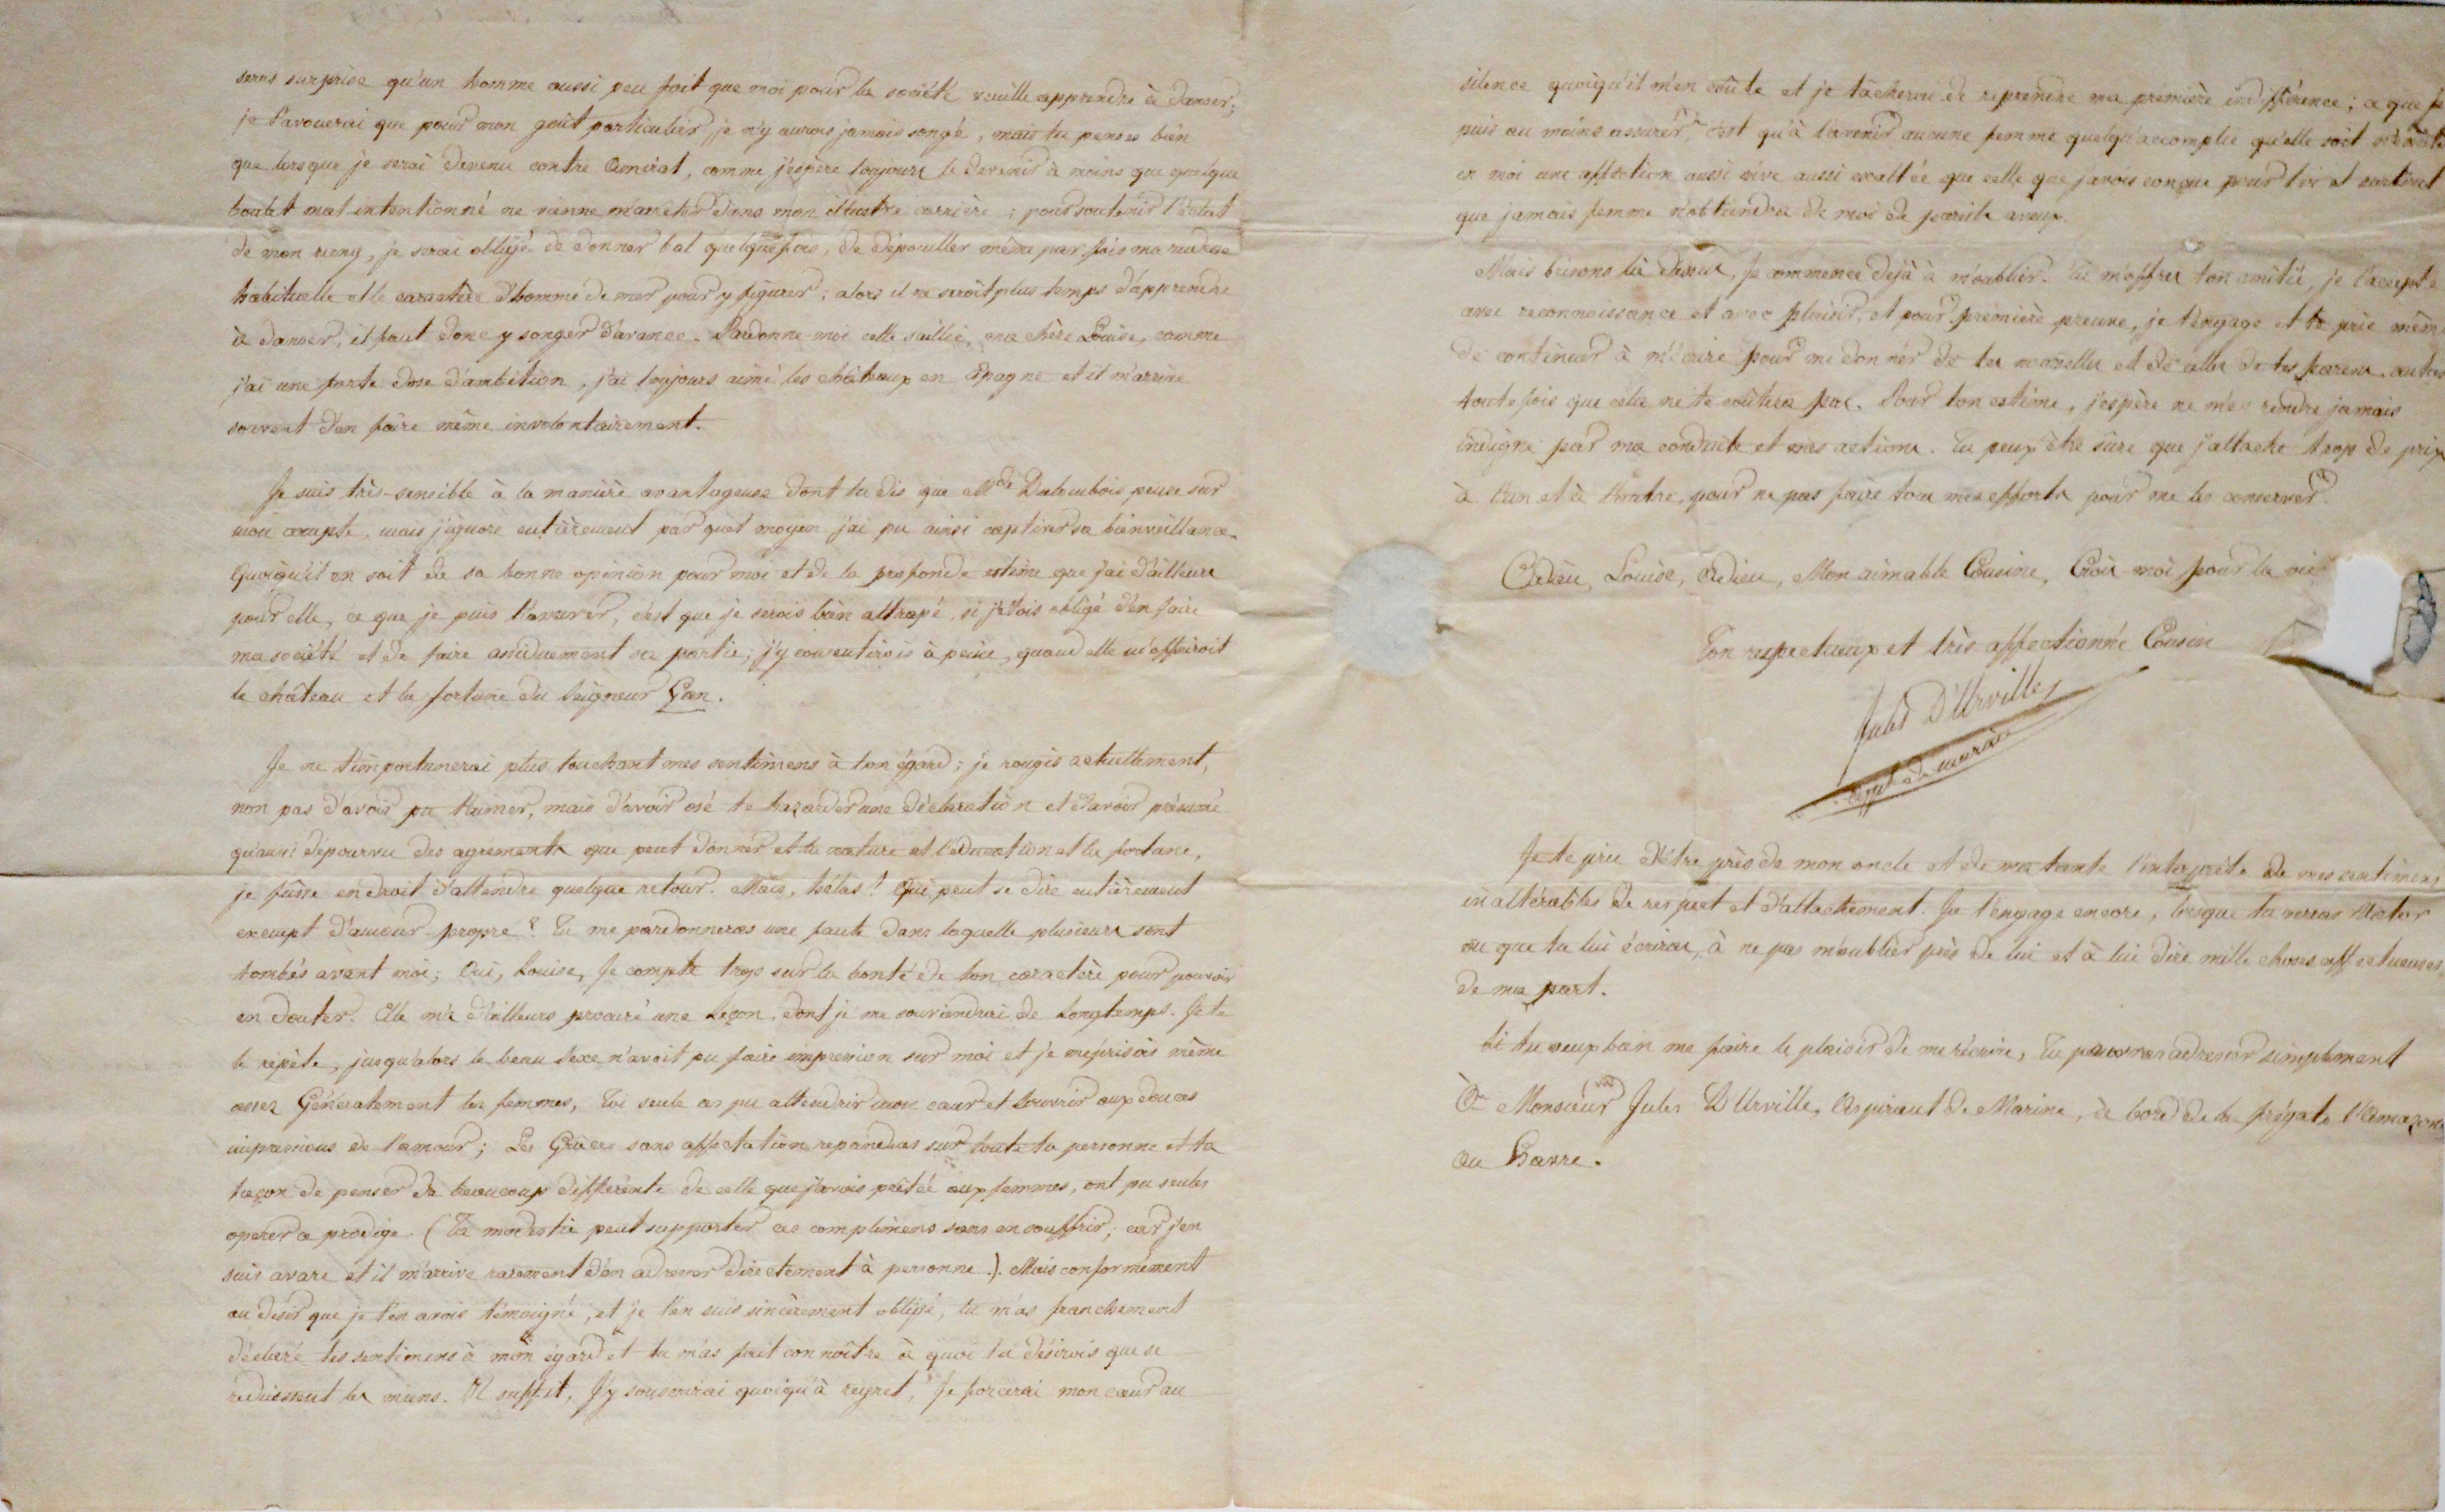 seras surprise qu'un homme aussi peu fait que moi pour la société veuille apprendre à danser;
je t'avouerai que pour mon goût particulier je n'y aurois jamais songé, mais tu penses bien
que lorsque je serai devenu contre Amiral, comme j'espère toujours le devenir à moins que quelque
boulet mal intentionné ne vienne m'arrêter dans mon illustre carrière; pour soutenir l'éclat
de mon rang, je serai obligé de donner bal quelquefois, de dépouiller même par fois ma rudesse
habituelle et le caractère d'homme de mer pour y figurer; alors il ne seroit plus temps d'apprendre
à danser, il faut donc y songer d'avance. Pardonne-moi cette saillie, ma chère Louise, comme
j'ai une forte dose d'ambition, j'ai toujours aimé les châteaux en Espagne et il m'arrive
souvent d'en faire même involontairement.
Je suis très-sensible à la manière avantageuse dont tu dis que Mde pense sur
mon compte, mais j'ignore entièrement par quel moyen j'ai pu ainsi captiver sa bienveillance.
Quoiqu'il en soit de sa bonne opinion pour moi et de la profonde estime que j'ai d'ailleurs
pour elle, ce que je puis t'assurer, c'est que je serois bien attrapé, si j'étois obligé d'en faire
ma société et de faire assiduement sa partie; j'y consentirois à peine, quand elle m'offriroit
le château et la fortune du Seigneur
Je ne t'importunerai plus touchant mes sentimens à ton égard; je rougis actuellement,
non pas d'avoir pu t'aimer, mais d'avoir osé te hazarder une déclaration et d'avoir présumé
qu'aussi dépourvu des agréments que peut donner et la nature et l'éducation et la fortune,
je fusse en droit d'attendre quelque retour. Mais, hélas! Qui peut se dire entièrement
exempt d'amour-propre? Tu me pardonneras une faute dans laquelle plusieurs sont
tombés avant moi; Oui, Louise, Je compte trop sur la bonté de ton caractère pour pouvoir
en douter. Elle m'a d'ailleurs procuré une Leçon, dont je me souviendrai de Longtemps. Je te
le répète, jusqu'alors le beau Sexe n'avoit pu faire impression sur moi et je méprisois même
assez Généralement les femmes, Toi seule as pu attendrir mon cœur et l'ouvrir aux douces
impressions de l'amour; Les Grâces sans affectation repandues sur toute ta personne et ta
façon de penser de beaucoup différente de celle que j'avois prêtée aux femmes, ont pu seules
operer ce prodige. (Ta modestie peut supporter ces complimens sans en souffrir; car j'en
suis avare et il m'arrive rarement d'en adresser directement à personne.). Mais conformément
au desir que je t'en avois témoigné, et je t'en suis sincèrement obligé, tu m'as franchement
déclaré tes sentimens à mon égard et tu m'as fait connoître à quoi tu désirois que se
reduisissent les miens. Il suffit, J'y souscrirai quoiqu'à regret, Je forcerai mon cœur au
silence quoiqu'il m'en coûte et je tâcherai de reprendre ma première indifférence; ce que je
puis au moins assurer, c'est qu'à l'avenir aucune femme quelqu'accomplie qu'elle soit n'excite
en moi une affection aussi vive aussi exaltée que celle que j'avois conçue pour toi et surtout
que jamais femme n'obtiendra de moi de pareils aveux.
Mais brisons là dessus, Je commence déjà à m'oublier. Tu m'offres ton amitié, je l'accepte
avec reconnoissance et avec plaisir, et pour première preuve, je t'engage et te prie même
de continuer à m'écrire pour me donner de tes nouvelles et de celles de tes parens,
toutefois que cela ne te coûtera pas. Pour ton estime, j'espère ne m'en rendre jamais
indigne par ma conduite et mes actions. Tu peux être sûre que j'attache trop de prix
à l'un et à l'autre, pour ne pas faire tous mes efforts pour me les conserver.
Adieu, Louise, Adieu, Mon aimable Cousine, Crois-moi pour la vie
Ton respectueux et très affectionné Cousin
Jules D'Urville
aspt de marine
Je te prie d'être près de mon oncle et de ma tante l'interprète de mes sentimens
inaltérables de respect et d'attachement. Je t'engage encore, lorsque tu verras Victor
ou que tu lui écriras, à ne pas m'oublier près de lui et à lui dire mille choses affectueuses
de ma part.
Si tu veux bien me faire le plaisir de me récrire, Tu pourras adresser simplement
À Monsieur Jules D'Urville, Aspirant de Marine, à bord de la frégate l'Amazone
au Havre.